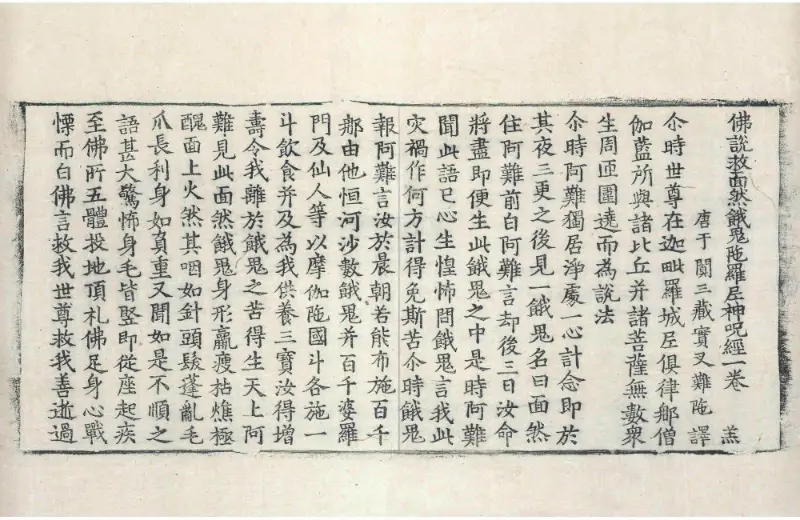 佛說救面然餓鬼陁羅尼神呪經一卷 羔
唐于闐三藏實叉難陁 譯
尒時世尊在迦毗羅城尼俱律𨙻僧
伽藍所與諸比丘并諸菩薩無數衆
生周匝圍遶而為說法
尒時阿難獨居淨處一心計念即於
其夜三更之後見一餓鬼名曰面然
住阿難前白阿難言却後三日汝命
將盡即便生此餓鬼之中是時阿難
聞此語已心生惶怖問餓鬼言我此
灾禍作何方計得免斯苦尒時餓鬼
報阿難言汝於晨朝若能布施百千
𨙻由他恒河沙數餓鬼并百千婆羅
門及仙人等以摩伽陁國斗各施一
斗飲食并及為我供養三寶汝得增
壽令我離於餓鬼之苦得生天上阿
難見此面然餓鬼身形羸瘦枯燋極
醜面上火然其咽如針頭髮蓬亂毛
爪長利身如負重又聞如是不順之
語甚大驚怖身毛皆竪即從座起疾
至佛所五體投地頂礼佛足身心戰
慄而白佛言救我世尊救我善逝過